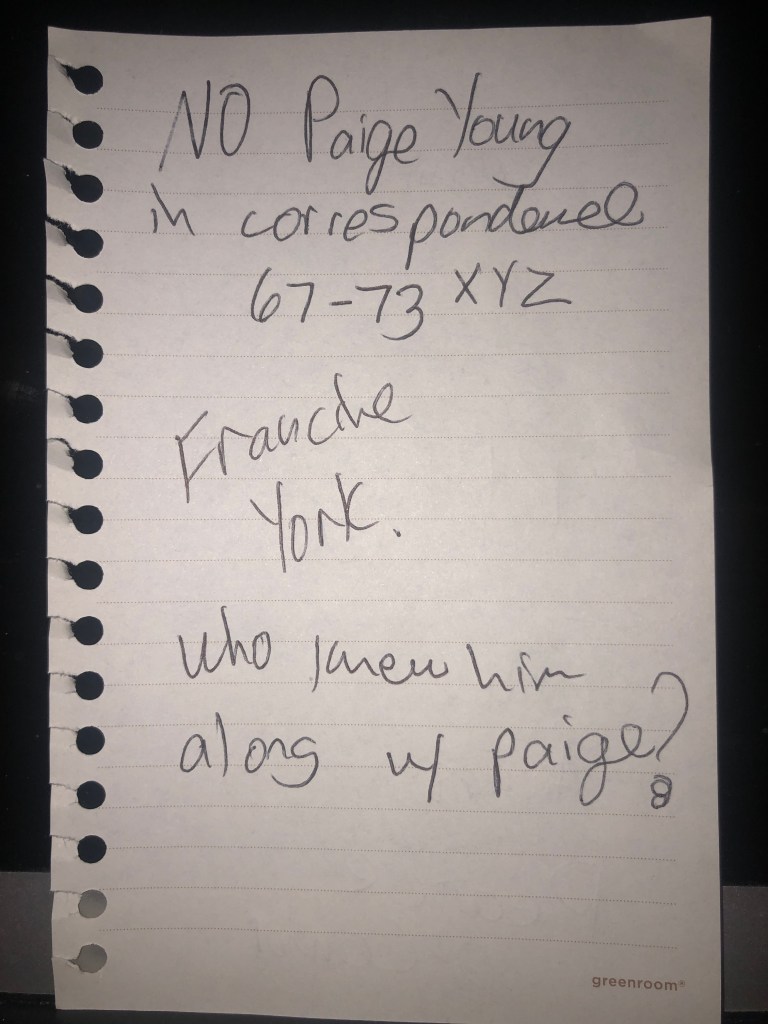 NO Paige Young
in correspondence
67-73 XYZ
Francine
York.
who knew him
along w/ paige?
greenroom®